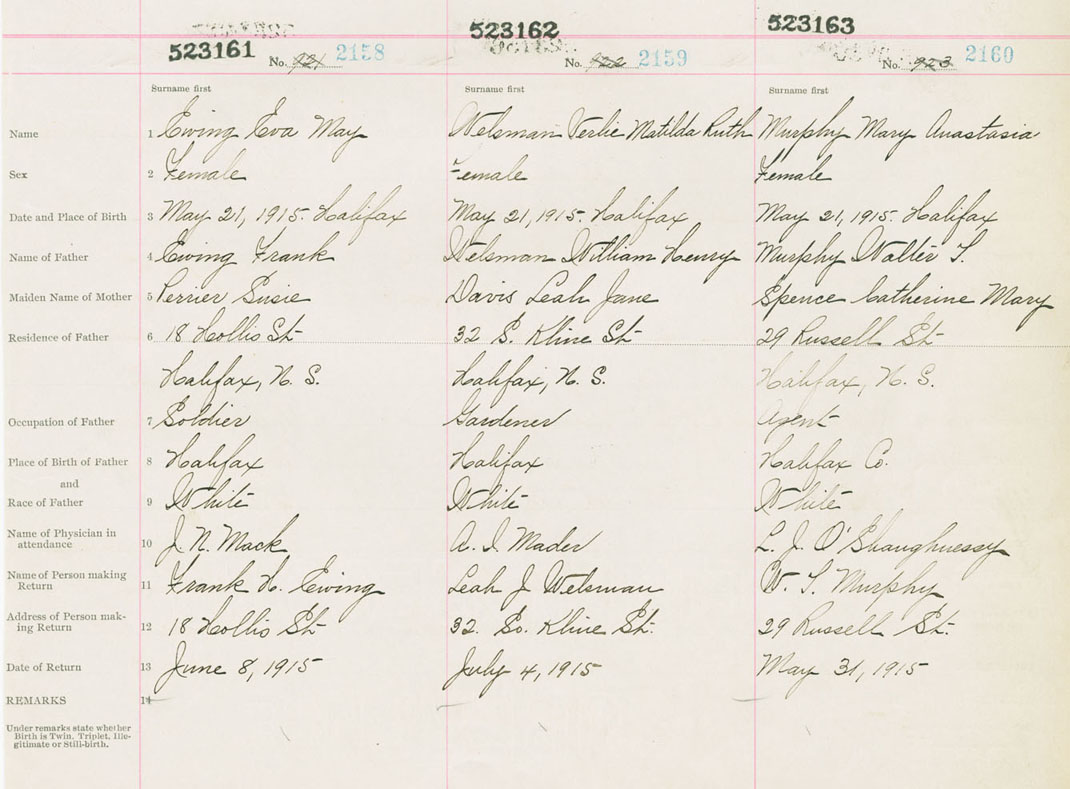 523161 523162 523163
No. 921 2158 No. 922 2159 No. 923 2160
Surname first Surname first Surname first
Name 1 Ewing Eva May Welsman Verlie Matilda Ruth Murphy Mary Anastasia
Sex 2 Female Female Female
Date and Place of Birth 3 May 21, 1915. Halifax May 21, 1915. Halifax May 21, 1915. Halifax
Name of Father 4 Ewing Frank Welsman William Henry Murphy Walter S.
Maiden Name of Mother 5 Perrier Susie Davis Leah Jane Spence Catherine Mary
Residence of Father 6 18 Hollis St 32 S. Kline St 29 Russell St
Halifax, N. S. Halifax, N. S. Halifax, N. S.
Occupation of Father 7 Soldier Gardener Agent
Place of Birth of Father 8 Halifax Halifax Halifax Co.
and
Race of Father 9 White White White
Name of Physician in
attendance 10 J. N. Mack A. I. Mader L. J. O'Shaughnessy
Name of Person making
Return 11 Frank H. Ewing Leah J Welsman W. S. Murphy
Address of Person mak-
ing Return 12 18 Hollis St 32. So. Kline St. 29 Russell St.
Date of Return 13 June 8, 1915 July 4, 1915 May 31, 1915
REMARKS 14
Under remarks state whether
Birth is Twin, Triplet, Ille-
gitimate or Still-birth.